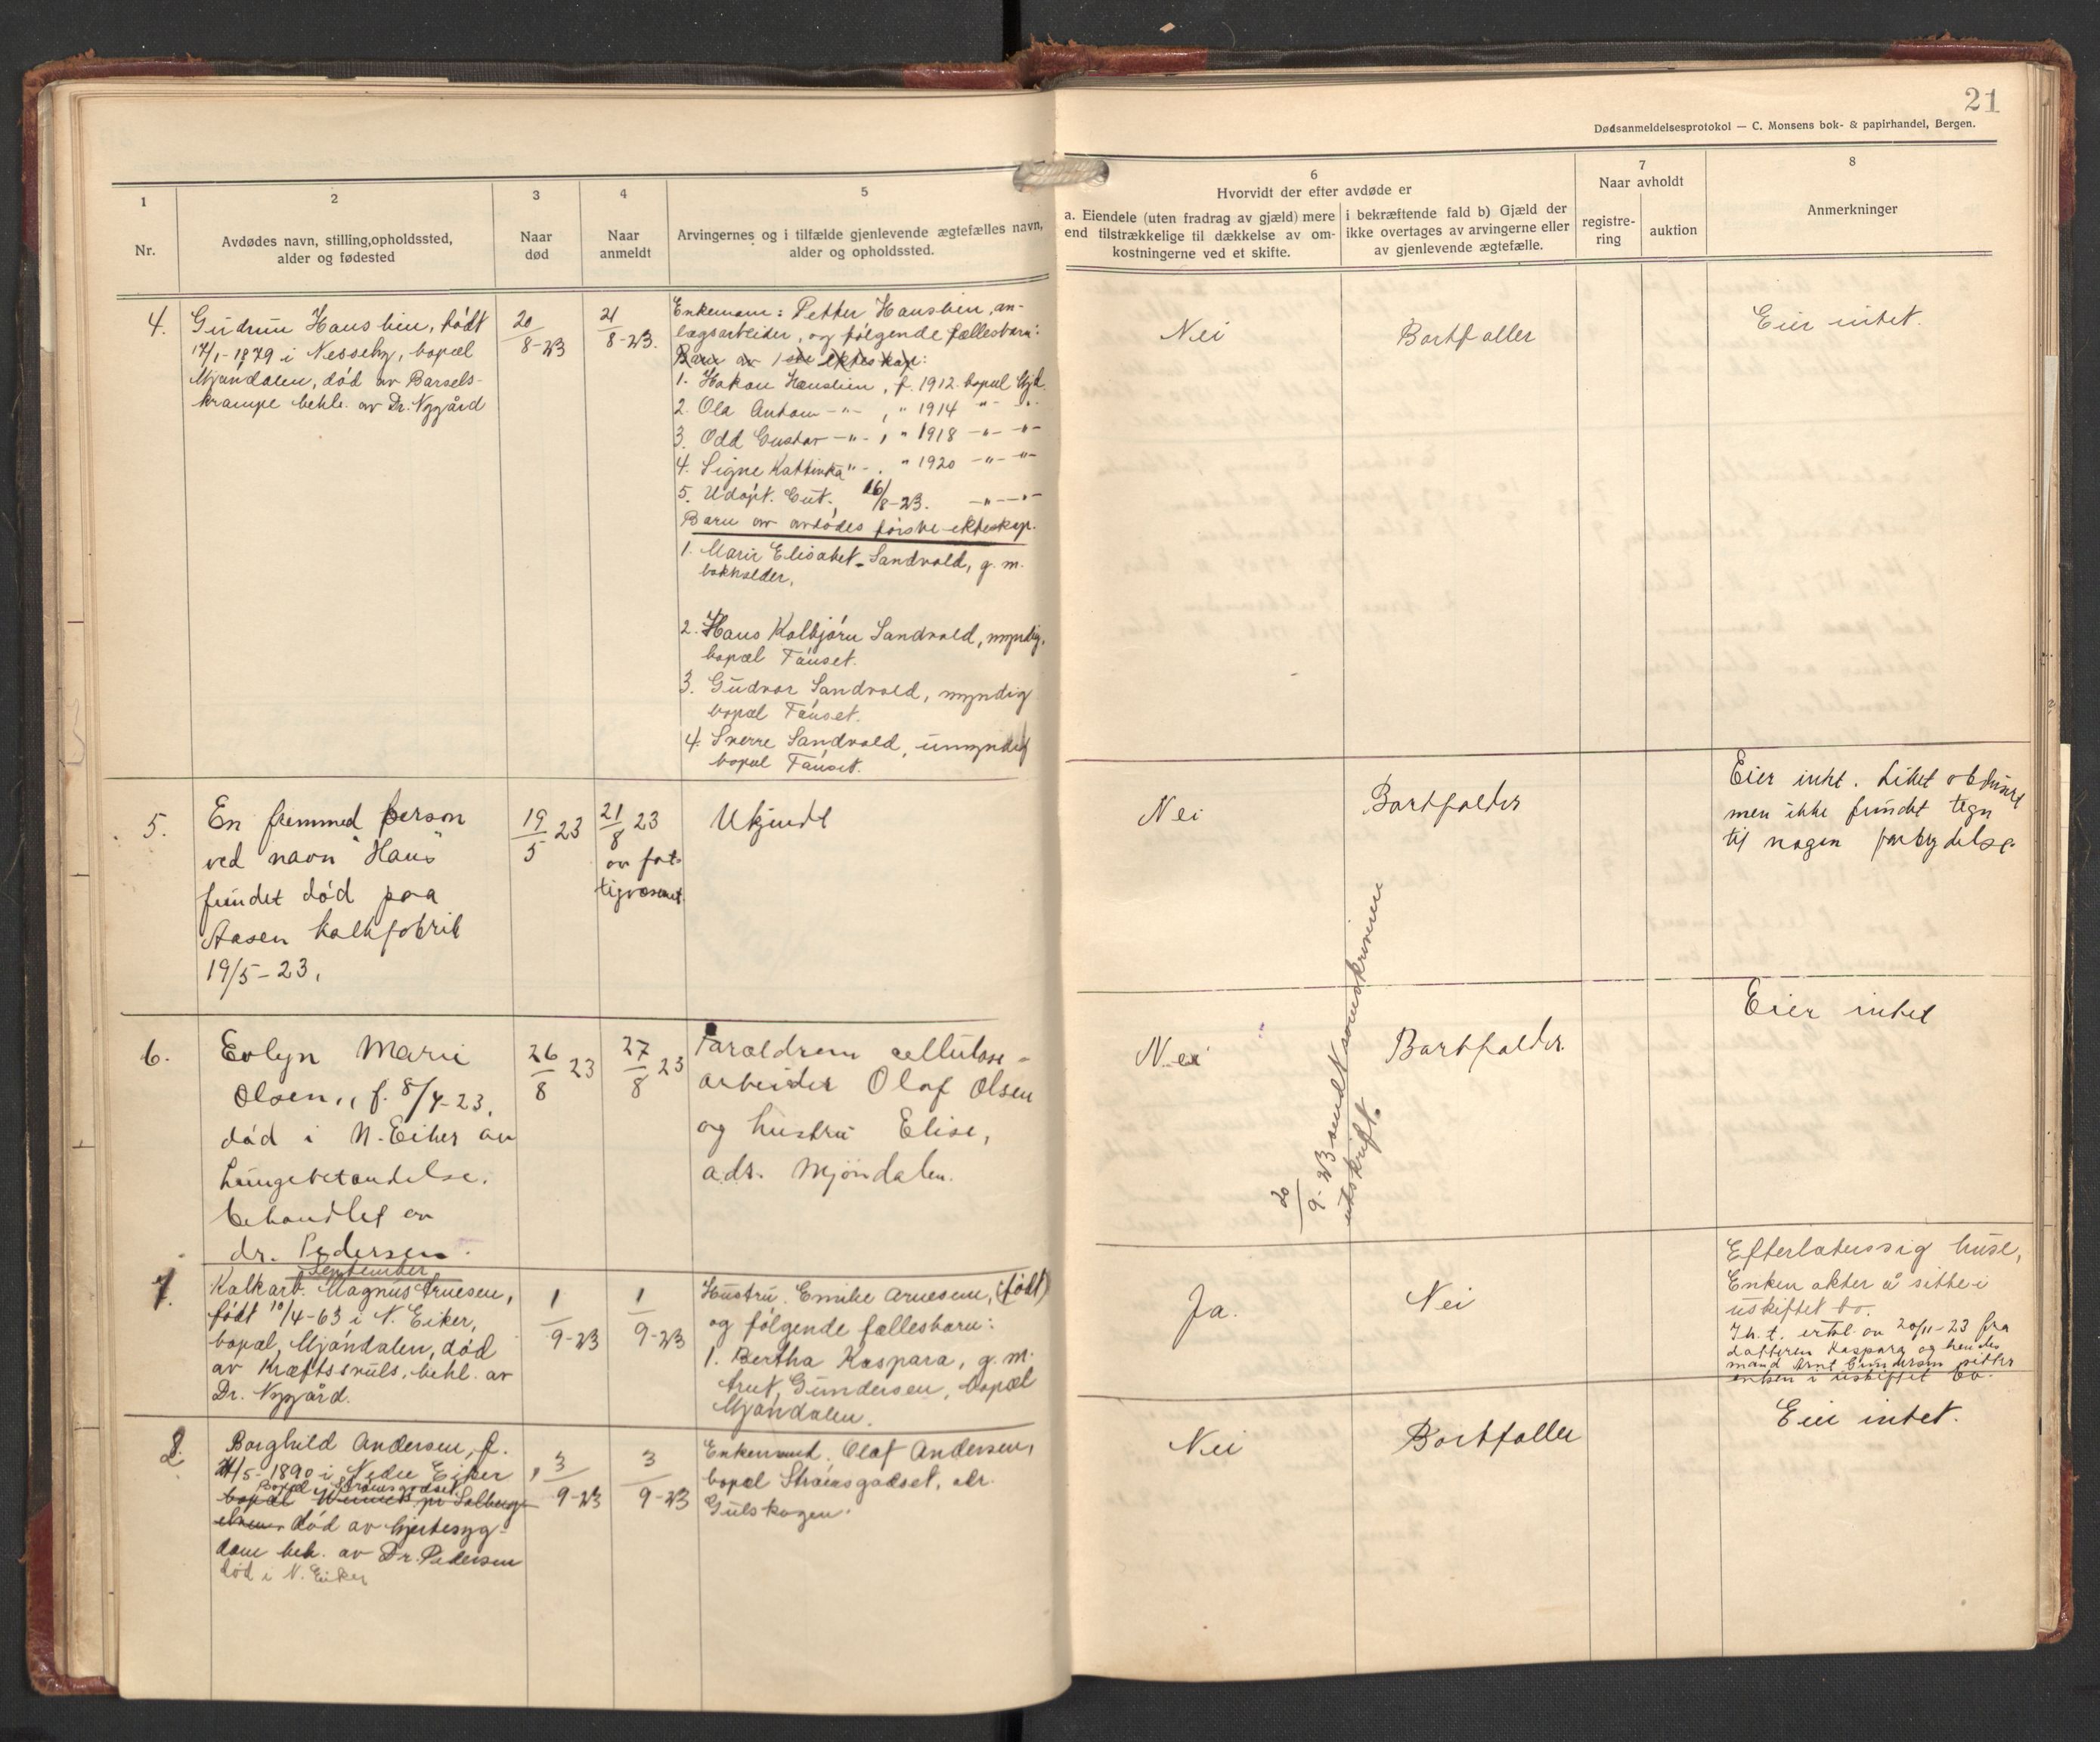 21
Dødsanmeldelsesprotokol — C. Monsens bok- & papirhandel, Bergen.
1
Nr.
2
Avdødes navn, stilling, opholdssted,
alder og fødested
3
Naar
død
4
Naar
anmeldt
5
Arvingernes og i tilfælde gjenlevende ægtefælles navn,
alder og opholdssted.
6
Hvorvidt der efter avdøde er
a. Eiendele (uten fradrag av gjæld) mere
end tilstrækkelige til dækkelse av om-
kostningerne ved et skifte.
i bekræftende fald b) Gjæld der
ikke overtages av arvingerne eller
av gjenlevende ægtefælle.
7
Naar avholdt
registre-
ring
auktion
8
Anmerkninger
4.
Gudrun Hanslien, født
17/1-1879 i Nesseby, bopæl
Mjøndalen, død av Barsels-
krampe behl. av Dr. Nygård
20/8-23
21/8-23.
Enkemann: Petter Hanslien, an-
lægsarbeider, og følgende fællesbarn:
Barn av 1ste ekteskap:
1. Hakon Hanslien, f. 1912. bopæl Mjd.
2. Ola Anton -"- , " 1914 -"- -"-
3. Odd Gustav -"- , " 1918 -"- -"-
4. Signe Kattinka -"- . " 1920 -"- -"-
5. Udøpt. Gut. 16/8-23. -"- -"-
Barn av avdødes første ekteskap.
1. Marie Elisabet Sandvold, g. m.
bokholder,
2. Hans Kolbjørn Sandvold, myndig,
bopæl Fauset.
3. Gudvor Sandvold, myndig
bopæl Fauset.
4. Sverre Sandvold, umyndig
bopæl Fauset.
Nei
Bortfaller
Eier intet.
5.
En fremmed person
ved navn "Hans"
fundet død paa
Aasen kalkfabrik
19/5-23.
19/5 23
21/8 23
av fat-
tigvæsenet
Ukjendt
Nei
Bortfalder
Eier intet. Liket obdusert
men ikke fundet tegn
til nogen forbrydelse.
6.
Evlyn Marie
Olsen, f. 8/4-23,
død i N. Eiker av
Lungebetændelse.
behandlet av
dr. Pedersen.
26/8 23
27/8 23
Forældrene cellulose-
arbeider Olaf Olsen
og hustru Elise,
adr. Mjøndalen.
Nei
Bortfalder.
Eier intet
20/9-23 sendt sorenskriveren
utskrift.
September
7.
Kalkarb. Magnus Arnesen,
født 10/4-63 i N. Eiker,
bopæl, Mjøndalen, død
av Kræftssvuls, behl. av
Dr. Nygård.
1/9-23
1/9-23
Hustru. Emilie Arnesen, (født)
og følgende fællesbarn:
1. Bertha Kaspara, g. m.
Arnt Gundersen, bopæl
Mjøndalen.
Ja.
Nei
Efterlater sig huse,
Enken akter å sitte i
uskiftet bo.
Ih. t. erkl. av 20/11-23 fra
datteren Kaspara og hendes
mand Arnt Gundersen sitter
enken i uskiftet bo.
8.
Borghild Andersen, f.
21/5-1890 i Nedre Eiker
Bopæl Strømsgodset
død av hjertesyg-
dom beh. av Dr. Pedersen
død i N. Eiker
3/9-23
3/9-23
Enkemand. Olaf Andersen,
bopæl Strømsgodset, adr.
Gulskogen.
Nei
Bortfaller
Eier intet.